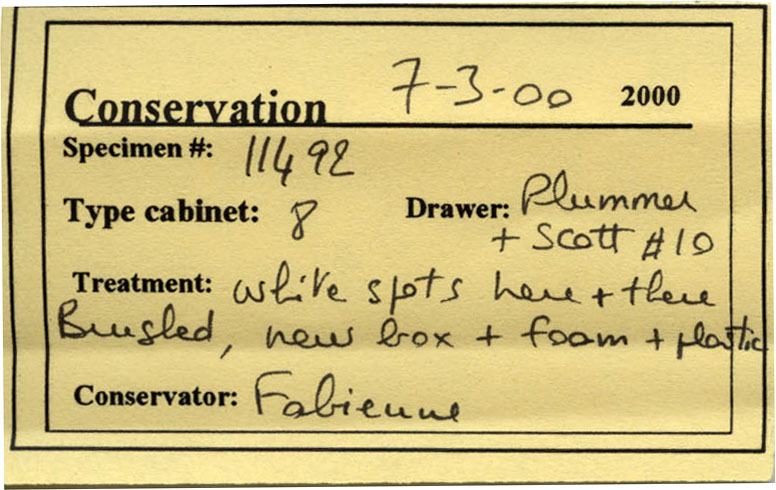 7-3-00 2000
Conservation
Specimen #: 11492
Type cabinet: 8 Drawer: Plummer
+ Scott #10
Treatment: white spots here + there
Brushed, new box + foam + plastic
Conservator: Fabienne